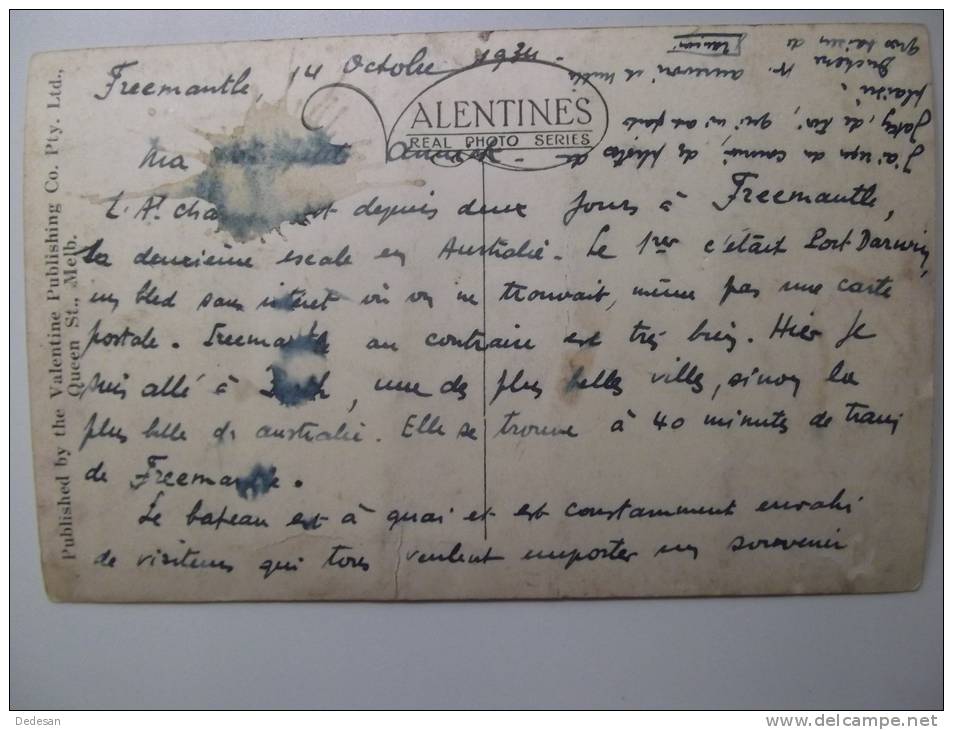 Freemantle, 14 Octobre 1934 -
VALENTINES
REAL PHOTO SERIES
Ma
L'At. est depuis deux jours à Freemantle,
la deuxième escale en Australie. Le 1er c'était Port Darwin,
un bled sans interet où on ne trouvait, même pas une carte
postale. Freemantle au contraire est très bien. Hier je
suis allé à Perth, une des plus belles villes, sinon la
plus belle d' australie. Elle se trouve à 40 minutes de train
de Freemantle.
Le bateau est à quai et est constamment envahi
de visiteurs qui tous veulent emporter un souvenir
J'ai reçu du de photos de
qui m'ont fait
plaisir.
gros baisers de
Published by the Valentine Publishing Co. Pty. Ltd.,
Queen St., Melb.
Dedesan
www.delcampe.net